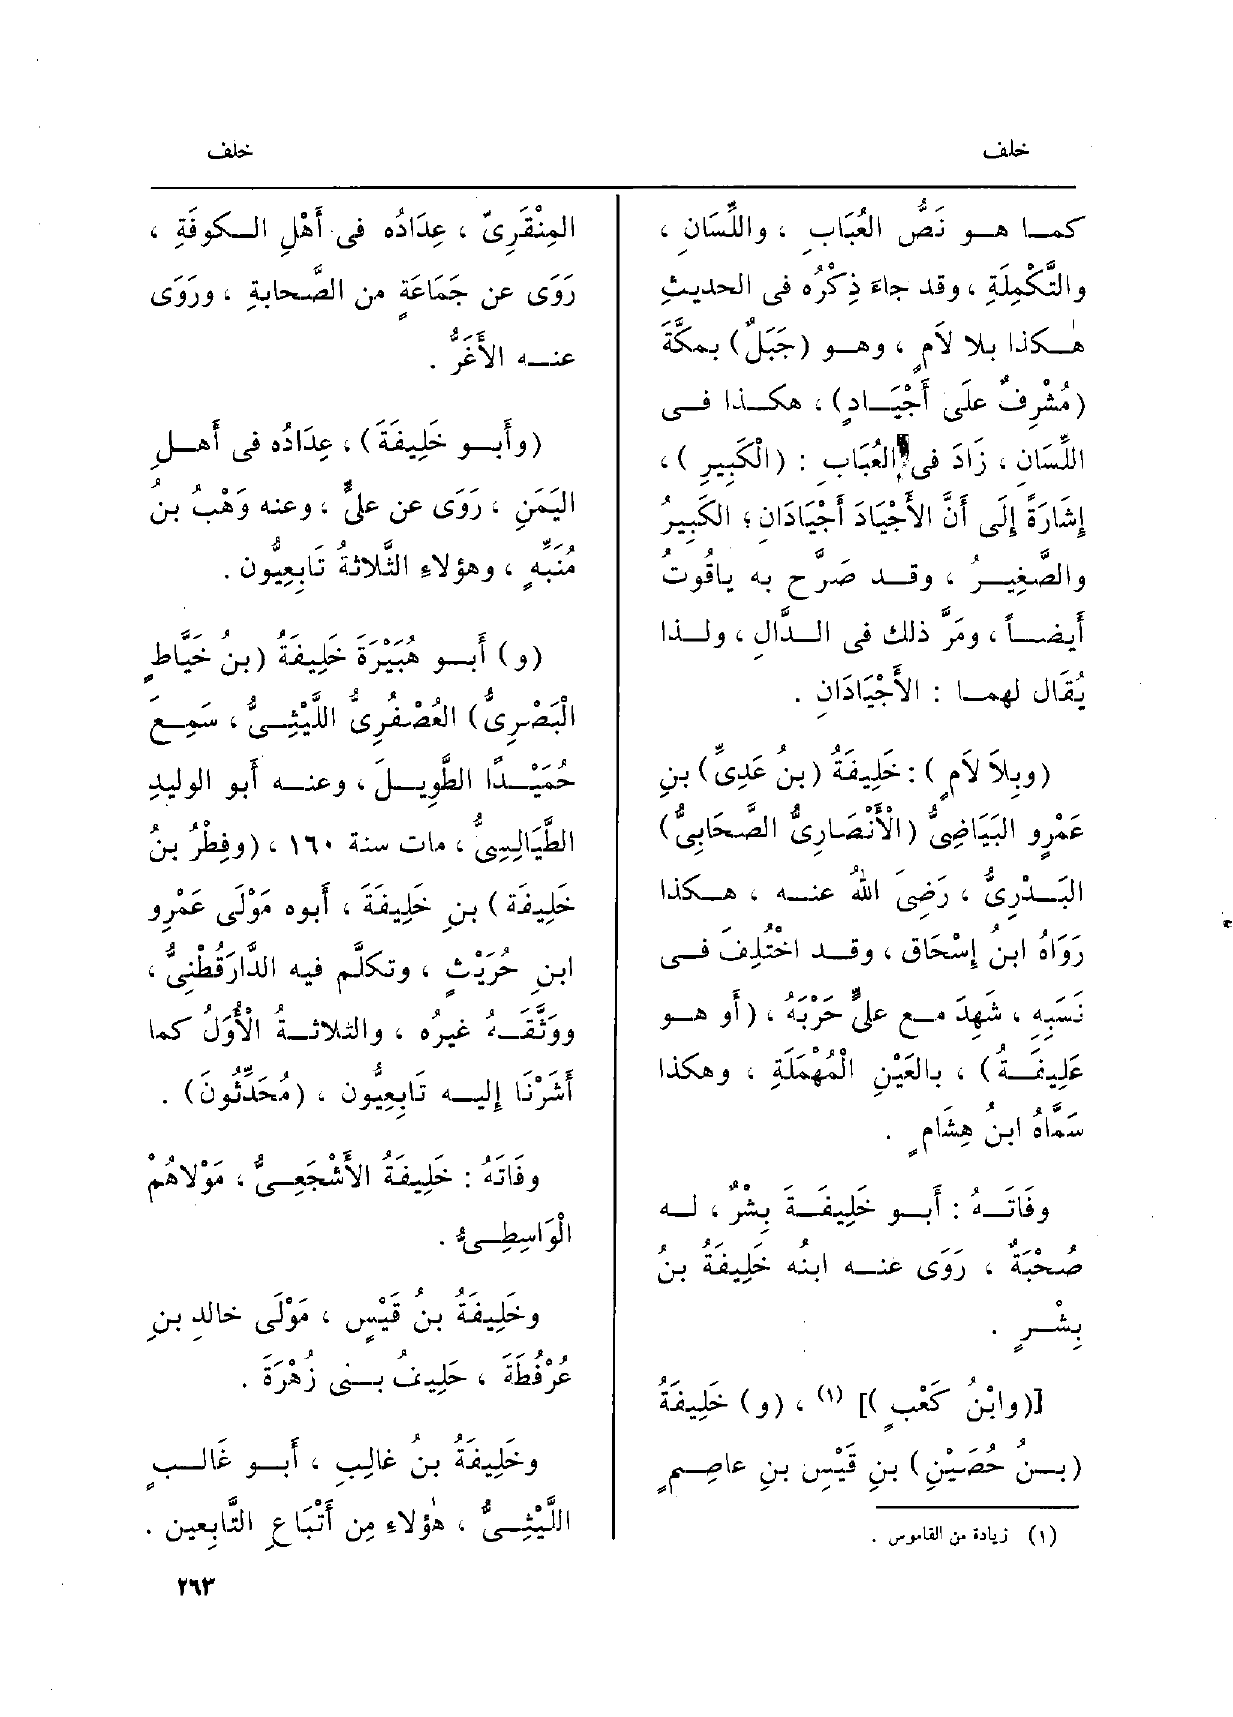 خلف
خلف
كمـا هـو نَصُّ العُبَابِ ، واللِّسَانِ ،
والتَّكْمِلَةِ ، وقد جاءَ ذِكْرُه فى الحديثِ
هـكذا بلا لاَمٍ ، وهـو (جَبَلٌ) بمكَّةَ
(مُشْرِفٌ علَى أَجْيَـادٍ) ، هكـذا فـى
اللِّسَانِ ، زَادَ فى العُبَابِ : (الْكَبِيرِ) ،
إِشَارَةً إِلَى أَنَّ الأَجْيَادَ أَجْيَادَانِ ؛ الكَبِيرُ
والصَّغِيـرُ ، وقـد صَرَّح به ياقوتُ
أَيضـاً ، ومَرَّ ذلك فى الـدَّالِ ، ولـذا
يُقَال لهمـا : الأَجْيَادَانِ .
(وبِلاَ لاَمٍ) : خَلِيفَةُ (بنُ عَدِىٍّ) بنِ
عَمْرٍو البَيَاضِىُّ (الْأَنْصَارِىُّ الصَّحَابِىُّ)
البَـدْرِىُّ ، رَضِىَ اللهُ عنـه ، هـكذا
رَوَاهُ ابنُ إِسْحَاق ، وقـد اخْتُلِفَ فـى
نَسَبِه ، شَهِدَ مـع علىٍّ حَرْبَهُ ، (أَو هـو
عَلِيفَـةُ) ، بالعَيْنِ الْمُهْمَلَةِ ، وهكذا
سَمَّاهُ ابنُ هِشَامٍ .
وفَاتَـهُ : أَبـو خَلِيفَـةَ بِشْرٌ ، لـه
صُحْبَةٌ ، رَوَى عنـه ابنُه خَلِيفَةُ بنُ
بِشْـرٍ .
[(وابْنُ كَعْبٍ)] (١) ، (و) خَلِيفَةُ
(بـنُ حُصَيْنِ) بنِ قَيْسِ بنِ عاصِـمٍ
(١) زيادة من القاموس .
المِنْقَرِىّ ، عِدَادُه فى أَهْلِ الـكوفَةِ ،
رَوَى عن جَمَاعَةٍ من الصَّحابةِ ، ورَوَى
عنـه الأَغَرُّ .
(وأَبـو خَلِيفَةَ) ، عِدَادُه فى أَهـلِ
اليَمَنِ ، رَوَى عن علىٍّ ، وعنه وَهْبُ بنُ
مُنَبِّهٍ ، وهؤلاءِ الثَّلاثةُ تَابِعِيُّون .
(و) أَبـو هُبَيْرَةَ خَلِيفَةُ (بنُ خَيَّاطٍ
الْبَصْرِىُّ) العُصْفُرِىُّ اللَّيْثِـىُّ ، سَمِـعَ
حُمَيْـدًا الطَّوِيـلَ ، وعنـه أَبو الوليدِ
الطَّيَالِسِىُّ ، مات سنة ١٦٠ ، (وفِطْرُ بنُ
خَلِيفَة) بنِ خَلِيفَةَ ، أَبوه مَوْلَى عَمْرِو
ابنِ حُرَيْثٍ ، وتكلَّم فيه الدَّارَقُطْنِىُّ ،
ووَثَّقَـهُ غيرُه ، والثلاثـةُ الْأُوَلُ كما
أَشَرْنَا إِليـه تَابِعِيُّون ، (مُحَدِّثُونَ) .
وفَاتَهُ : خَلِيفَةُ الأَشْجَعِـىُّ ، مَوْلاَهُمْ
الْوَاسِطِـىُّ .
وخَلِيفَةُ بنُ قَيْسٍ ، مَوْلَى خالدِ بنِ
عُرْفُطَةَ ، حَلِيفُ بـنى زُهْرَةَ .
وخَلِيفَةُ بنُ غالِبٍ ، أَبـو غَالـبٍ
اللَّيْثِـىُّ ، هٰؤلاءِ مِن أَتْبَاعِ التَّابِعين .
٢٦٣